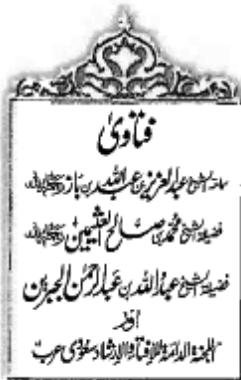 فتاویٰ
سماحۃ الشیخ عبدالعزیز بن عبداللہ بن باز رحمۃ اللہ علیہ
فضیلۃ الشیخ محمد بن صالح العثیمین رحمۃ اللہ علیہ
فضیلۃ الشیخ عبداللہ بن عبدالرحمٰن الجبرین
اور
اللجنۃ الدائمۃ للافتاء والارشاد سعودی عرب